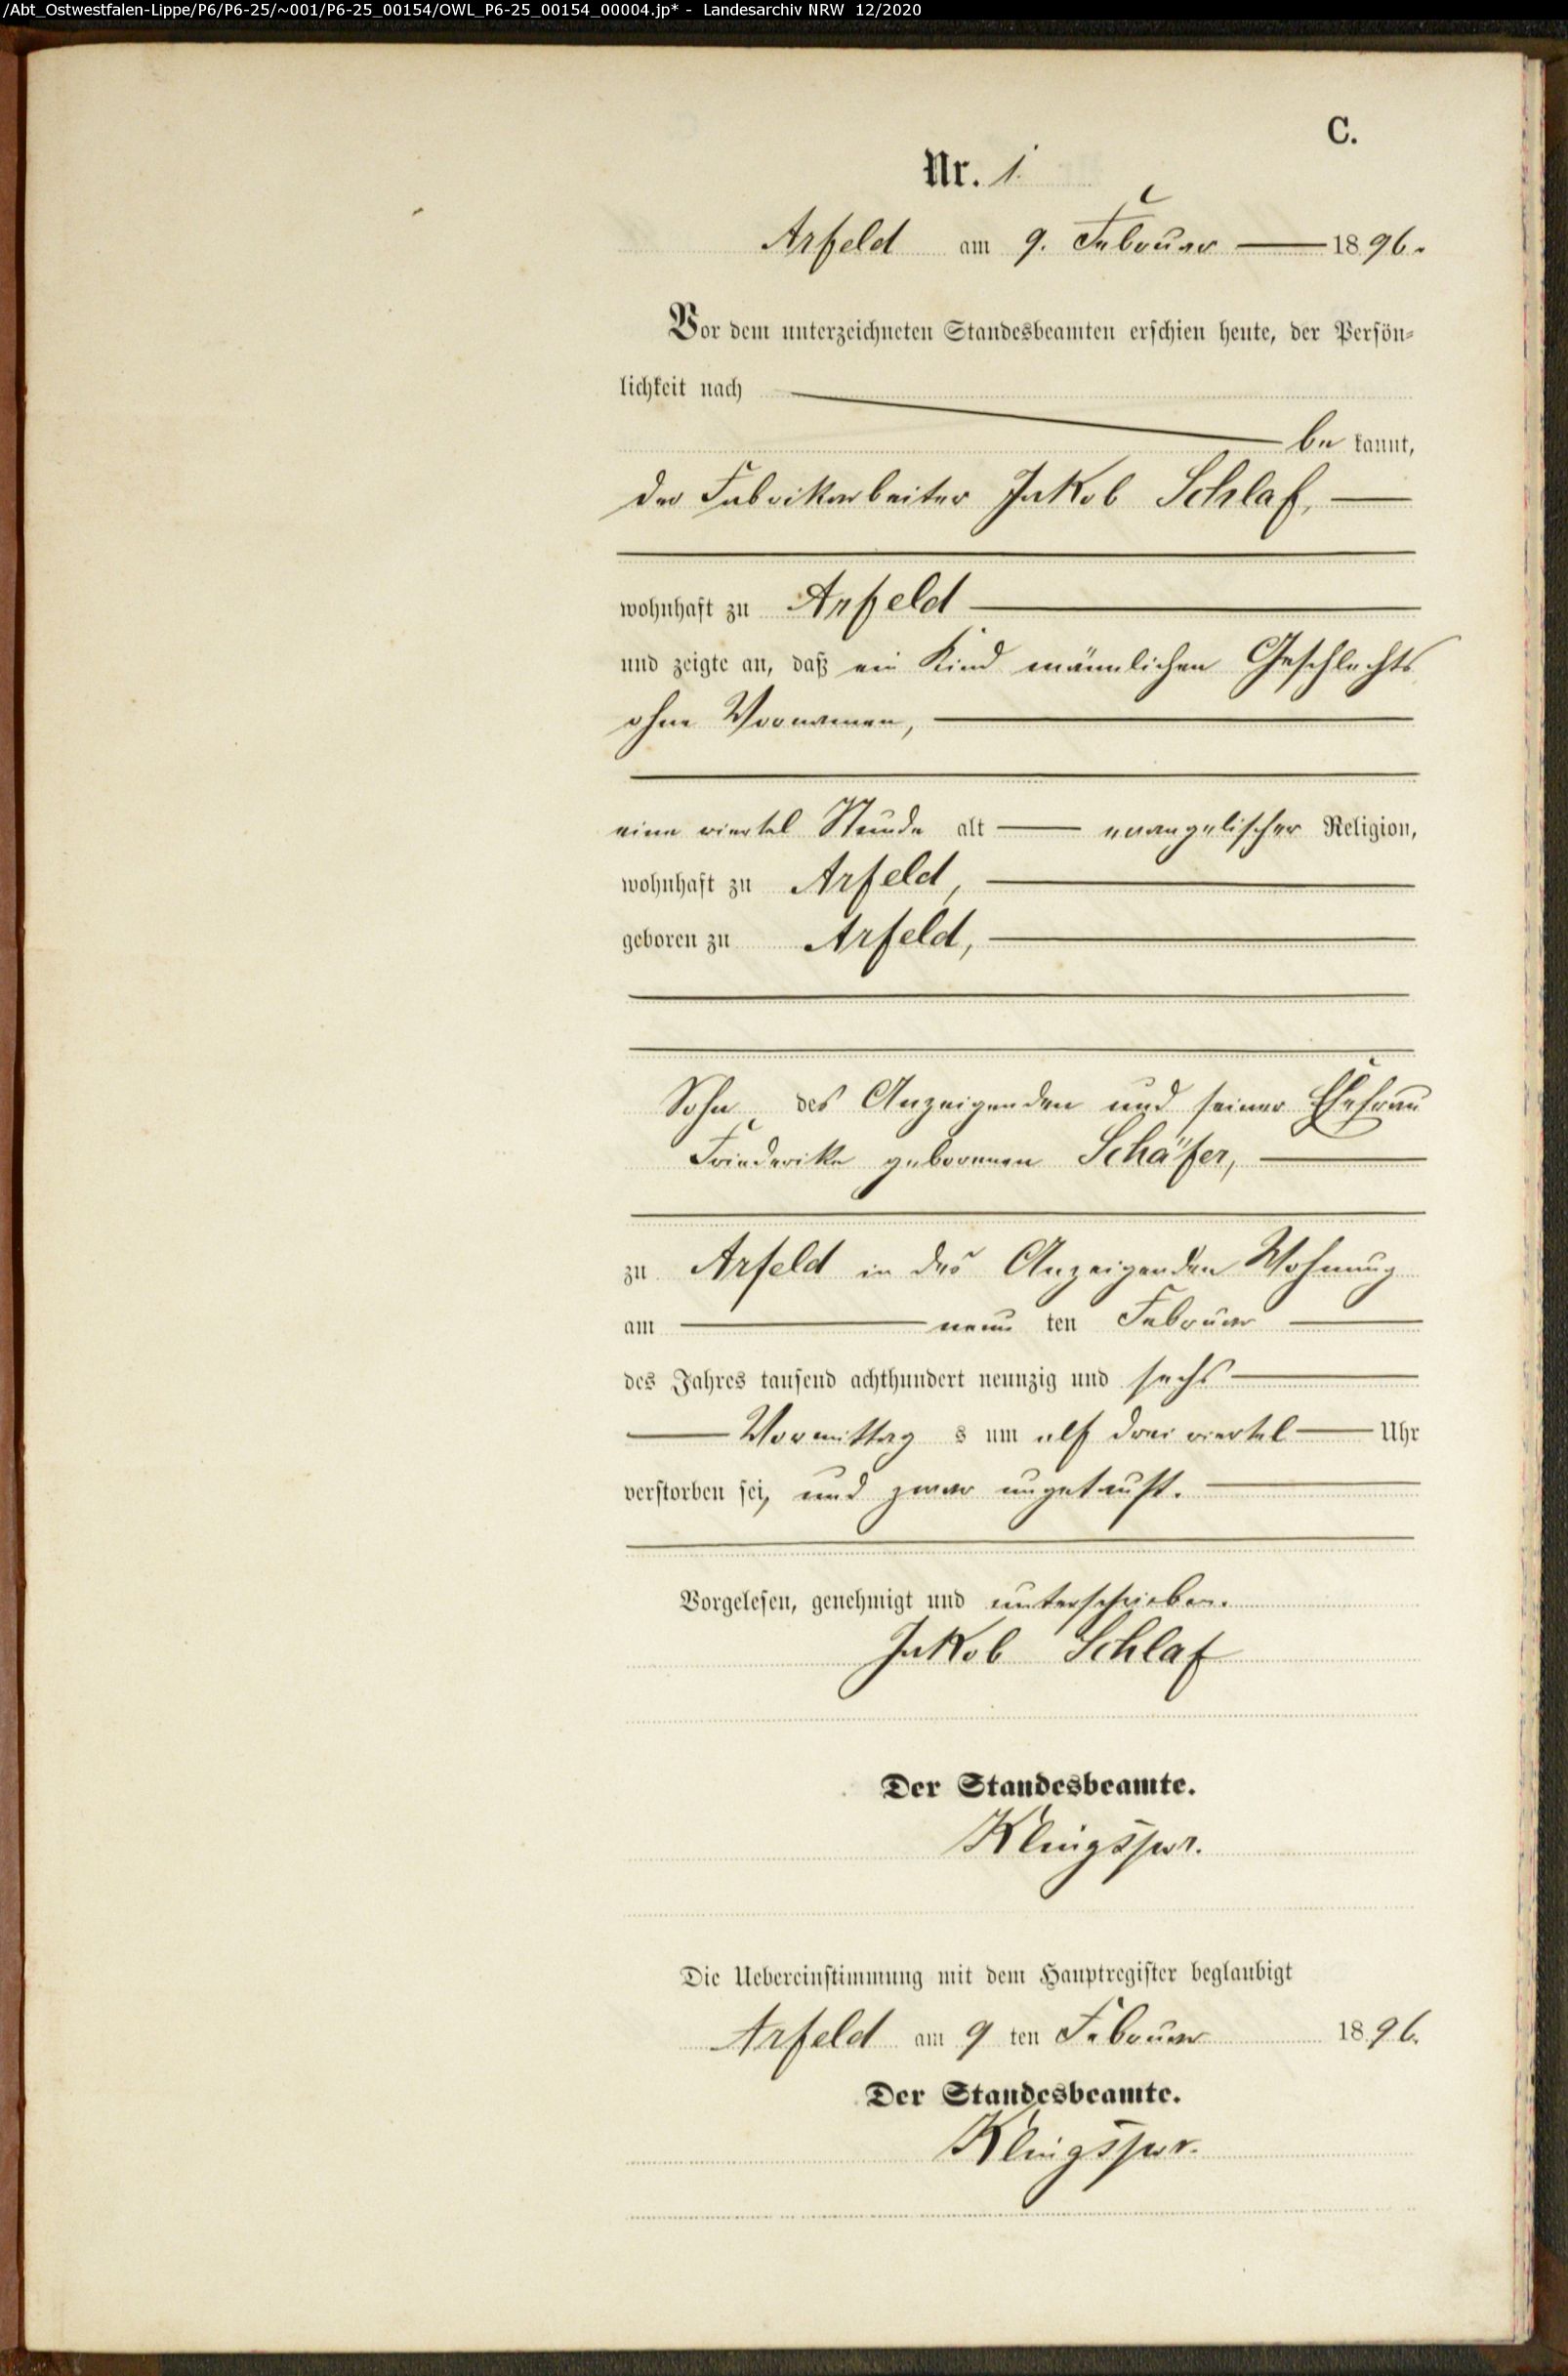 /Abt_Ostwestfalen-Lippe/P6/P6-25/~001/P6-25_00154/OWL_P6-25_00154_00004.jp* - Landesarchiv NRW 12/2020
C.
Nr. 1.
Arfeld am 9. Februar 1896.
Vor dem unterzeichneten Standesbeamten erschien heute, der Persön-
lichkeit nach
be kannt,
der Fabrikarbeiter Jakob Schlaf,
wohnhaft zu Arfeld
und zeigte an, daß ein Kind männlichen Geschlechts
ohne Vornamen,
eine viertel Stunde alt evangelischer Religion,
wohnhaft zu Arfeld,
geboren zu Arfeld,
Sohn des Anzeigenden und seiner Ehefrau
Friederike geborenen Schäfer,
zu Arfeld in des Anzeigenden Wohnung
am neun ten Februar
des Jahres tausend achthundert neunzig und sechs
Vormittag s um elf drei viertel Uhr
verstorben sei, und zwar ungetauft.
Vorgelesen, genehmigt und unterschrieben.
Jakob Schlaf
Der Standesbeamte.
Klingspor.
Die Uebereinstimmung mit dem Hauptregister beglaubigt
Arfeld am 9 ten Februar 1896.
Der Standesbeamte.
Klingspor.